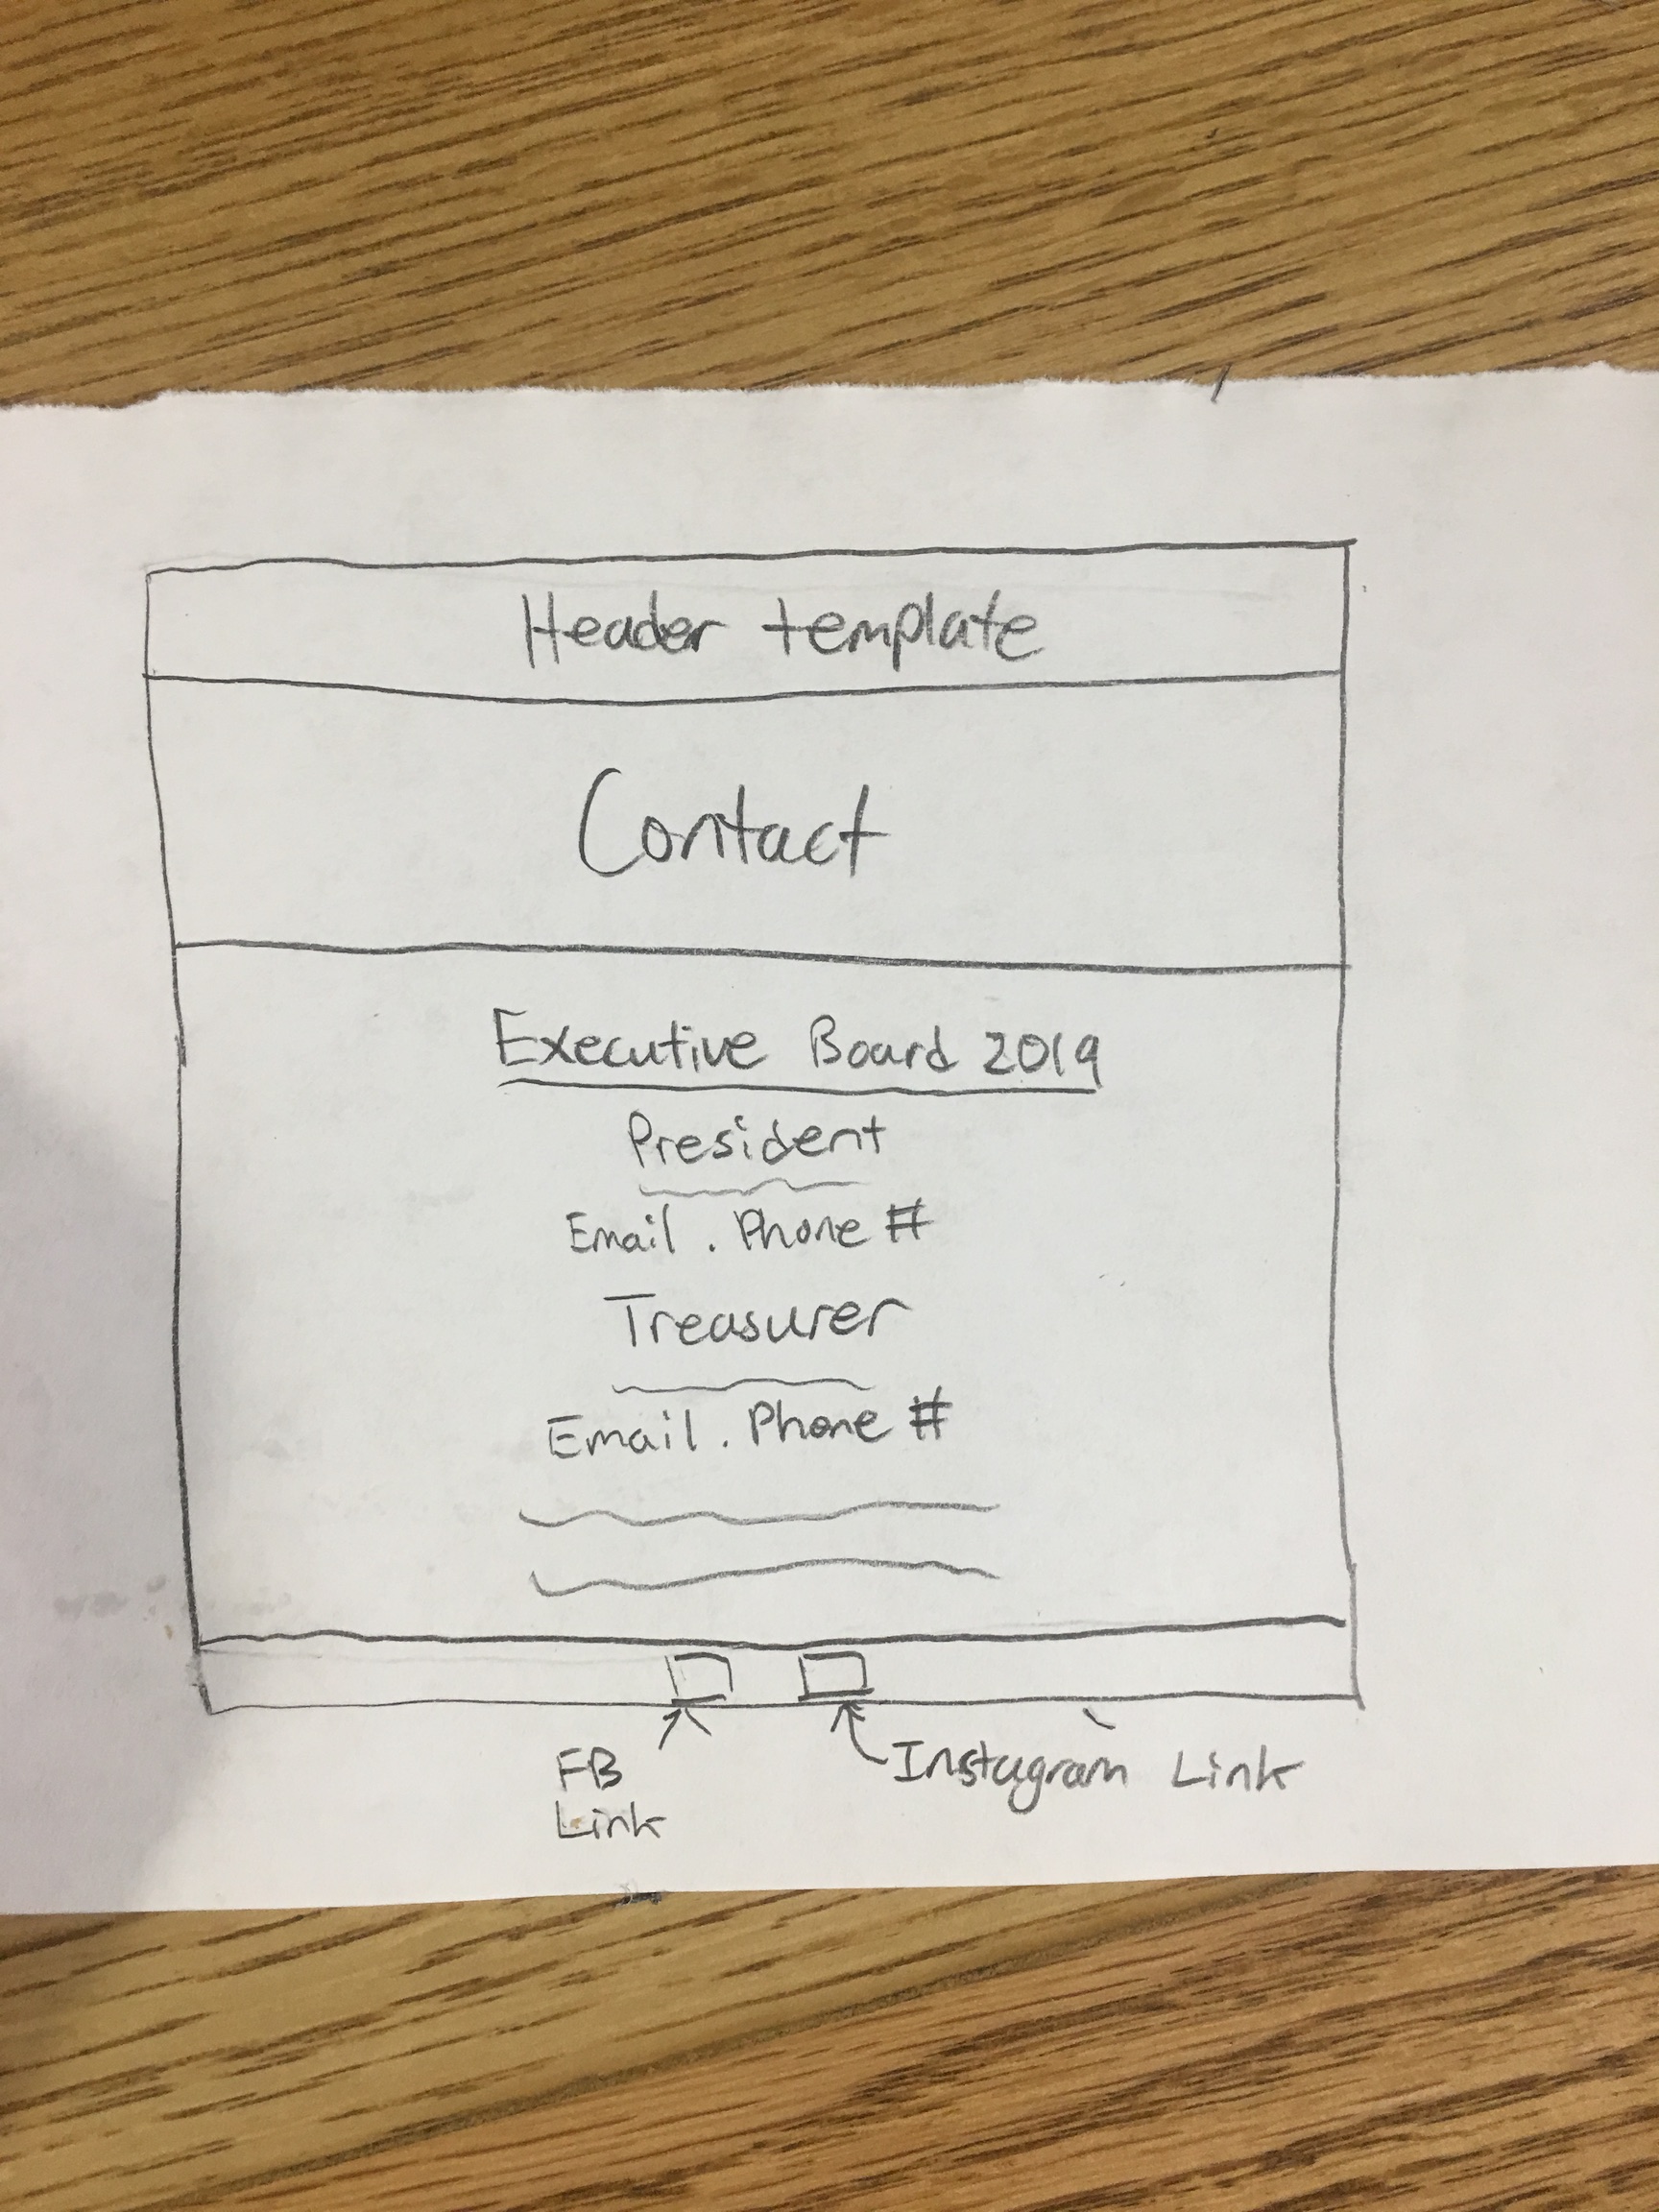 Header template
Contact
Executive Board 2019
President
Email . Phone #
Treasurer
Email . Phone #
FB
Link
Instagram Link